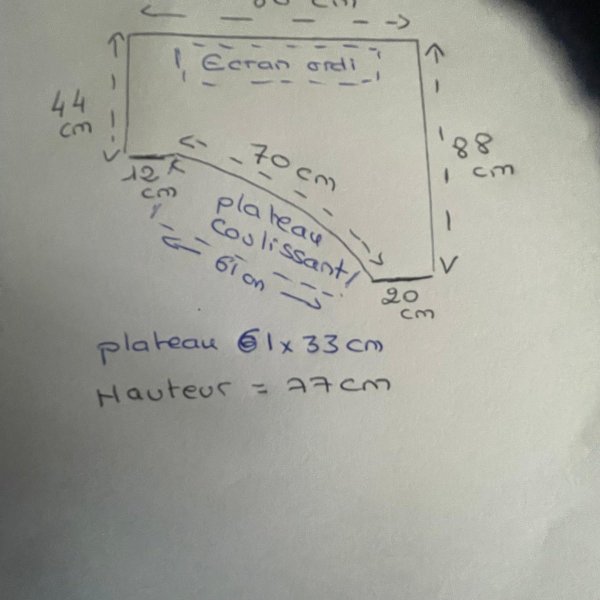 cm
Ecran ordi
44
cm
70 cm
88
cm
12
cm
plateau
coulissant
61 cm
20
cm
plateau 61 x 33 cm
Hauteur = 77 cm